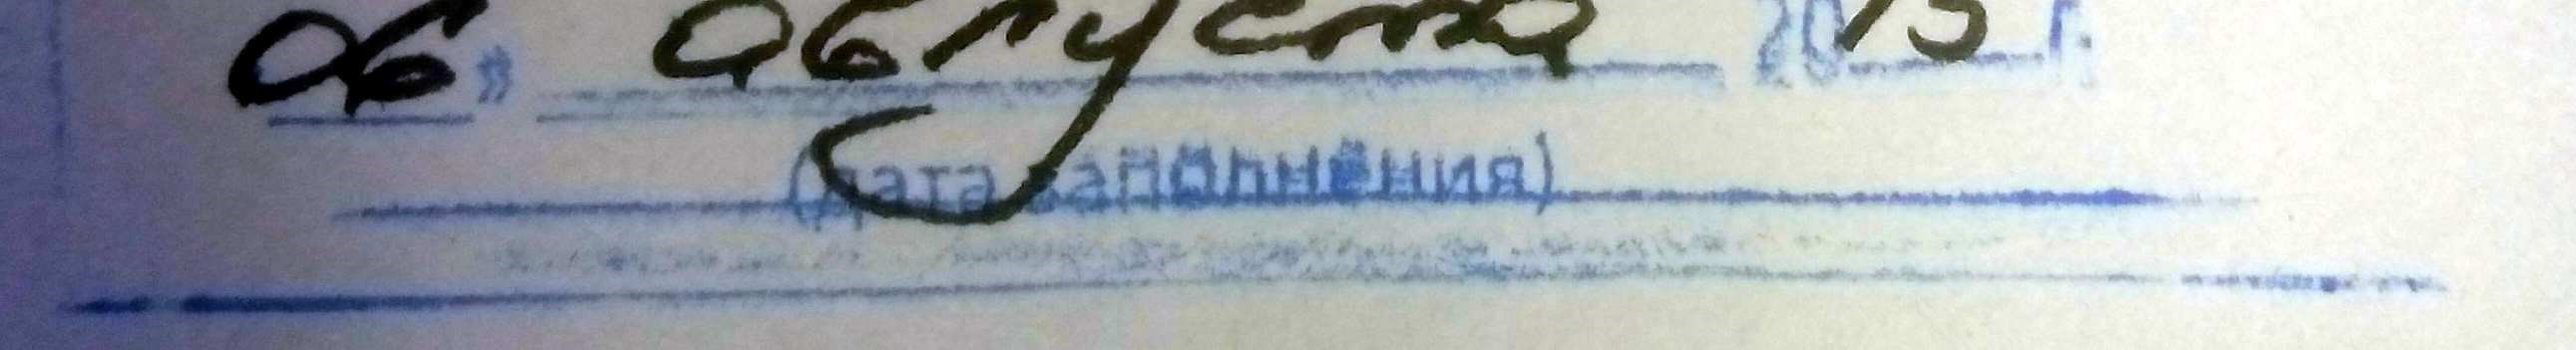 06» августа 2013 г.
(дата заполнения)